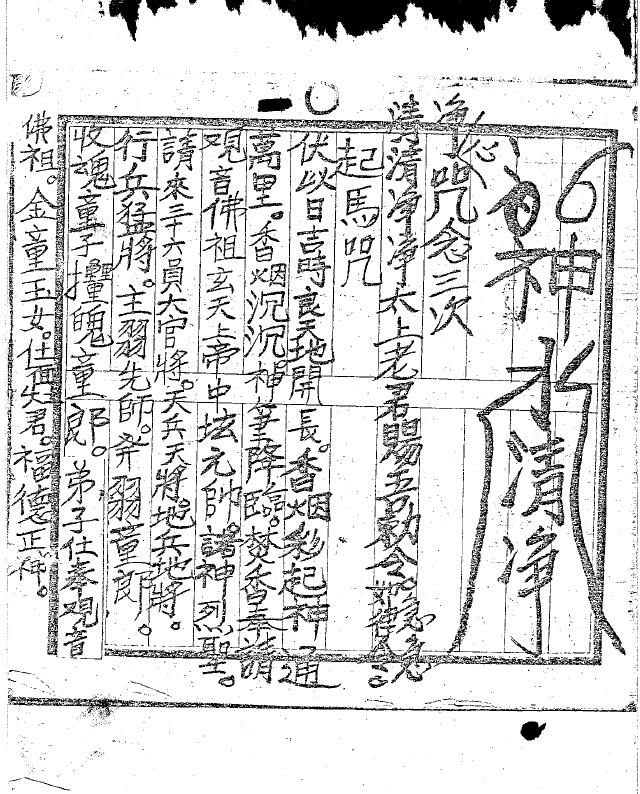 神水清净
净心咒念三次
清清净净太上老君賜吾勅令
起馬咒
伏以日吉時良天地開長。香烟彩起神通
萬里。香烟沉沉神降臨。焚香奉請
观音佛祖玄天上帝中坛元帥。諸神烈聖。
請來三十六員大官將。天兵天將。地兵地將。
行兵猛將。主翁先師。翁童郎。
收魂童子攝魄童郎。弟子仕奉观音
佛祖。金童玉女。君。福德正神。